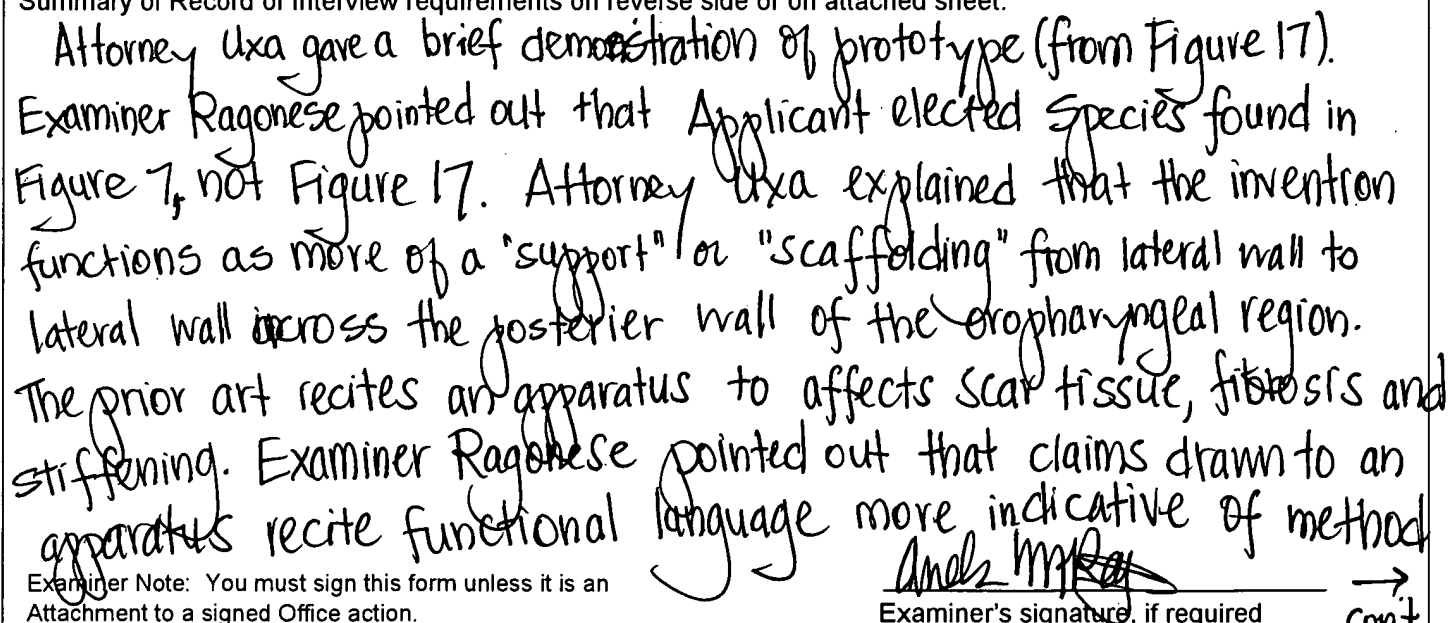 Summary of Record of Interview requirements on reverse side or on attached sheet.
Attorney Uxa gave a brief demonstration of prototype (from Figure 17).
Examiner Ragonese pointed out that Applicant elected Species found in
Figure 7, not Figure 17. Attorney Uxa explained that the invention
functions as more of a "support" or "scaffolding" from lateral wall to
lateral wall across the posterier wall of the oropharyngeal region.
The prior art recites an apparatus to affects scar tissue, fibrosis and
stiffening. Examiner Ragonese pointed out that claims drawn to an
apparatus recite functional language more indicative of method
Examiner Note: You must sign this form unless it is an
Attachment to a signed Office action.
Examiner's signature, if required
→
con't